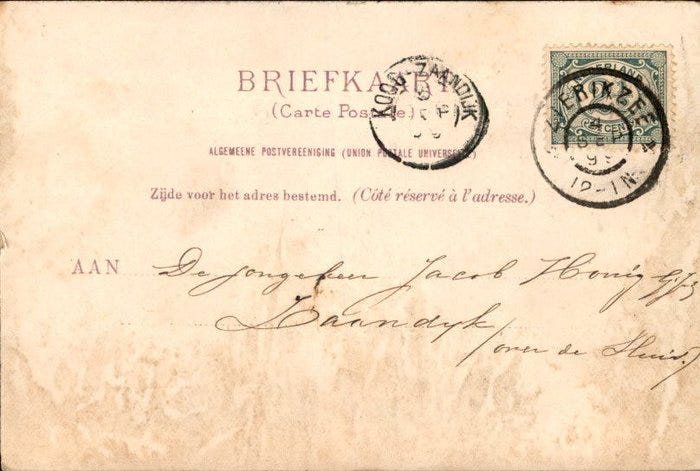 BRIEFKAART
(Carte Postale)
ALGEMEENE POSTVEREENIGING (UNION POSTALE UNIVERSELLE)
Zijde voor het adres bestemd. (Côté réservé à l'adresse.)
KOOG-ZAANDIJK
NEDERLAND
ZIERIKZEE
4
SEP
12-1N
AAN De jongeheer Jacob Honig
Zaandyk
(over de Sluis)